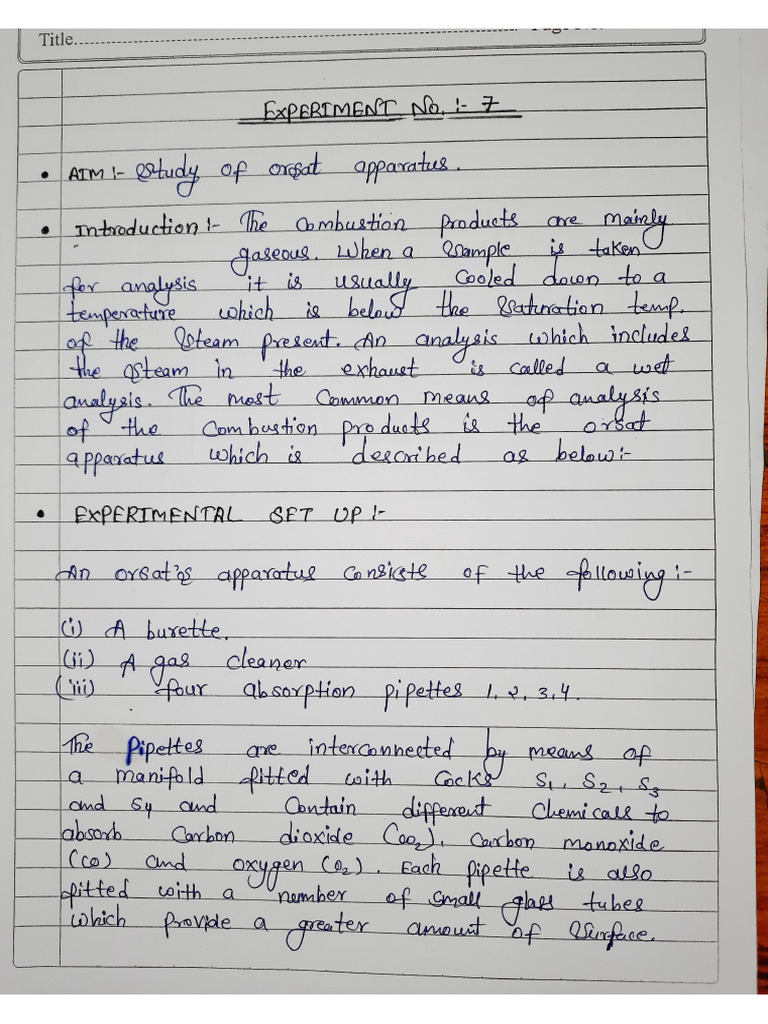 Title
EXPERIMENT No. :- 7
• AIM :- Study of orsat apparatus.
• Introduction :- The Combustion products are mainly
gaseous. When a Sample is taken
for analysis it is usually Cooled down to a
temperature which is below the Saturation temp.
of the Steam present. An analysis which includes
the Steam in the exhaust is called a wet
analysis. The most Common means of analysis
of the Combustion products is the orsat
apparatus which is described as below :-
• EXPERIMENTAL SET UP :-
An orsat's apparatus consists of the following :-
(i) A burette.
(ii) A gas cleaner
(iii) four absorption pipettes 1, 2, 3, 4.
The Pipettes are interconnected by means of
a manifold fitted with Cocks S1, S2, S3
and S4 and Contain different Chemicals to
absorb Carbon dioxide (CO2), Carbon monoxide
(CO) and oxygen (O2). Each pipette is also
fitted with a number of small glass tubes
which provide a greater amount of Surface.